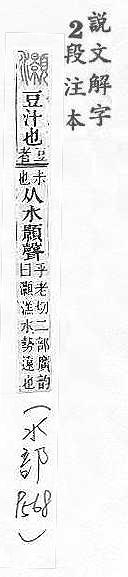 說文解字
2段注本
灝 豆汁也豆者尗也从水顥聲乎老切二部廣韵曰灝溔水勢遠也(水部 P568)